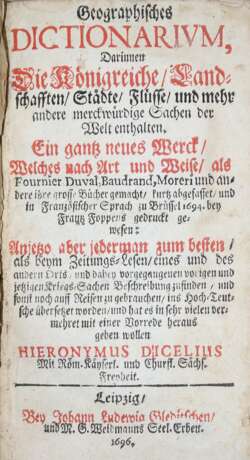 Geographisches
DICTIONARIVM,
Darinnen
Die Königreiche/ Land-
schafften/ Städte/ Flüsse/ und mehr
andere merckwürdige Sachen der
Welt enthalten.
Ein gantz neues Werck/
Welches nach Art und Weise/ als
Fournier Duval, Baudrand, Moreri und an-
dere ihre gross. Bücher gemacht/ kurtz abgefasset/ und
in Frantzösischer Sprach zu Brüssel 1694. bey
Frantz Foppens gedruckt ge-
wesen:
Anjetzo aber jederman zum besten/
als beym Zeitungs-Lesen/ eines und des
andern Orts, und dabey vorgegangenen vorigen und
jetzigen Kriegs-Sachen Beschreibung zufinden/ und
sonst noch auff Reisen zu gebrauchen/ ins Hoch-Teut-
sche übersetzet worden/ und hat es in sehr vielen ver-
mehret mit einer Vorrede heraus
geben wollen
HIERONYMUS DICELIUS
Mit Röm. Käyserl. und Churfl. Sächs.
Freyheit.
Leipzig/
Bey Johann Ludewig Gleditschen/
und M. G. Weidmanns Seel. Erben.
1696.